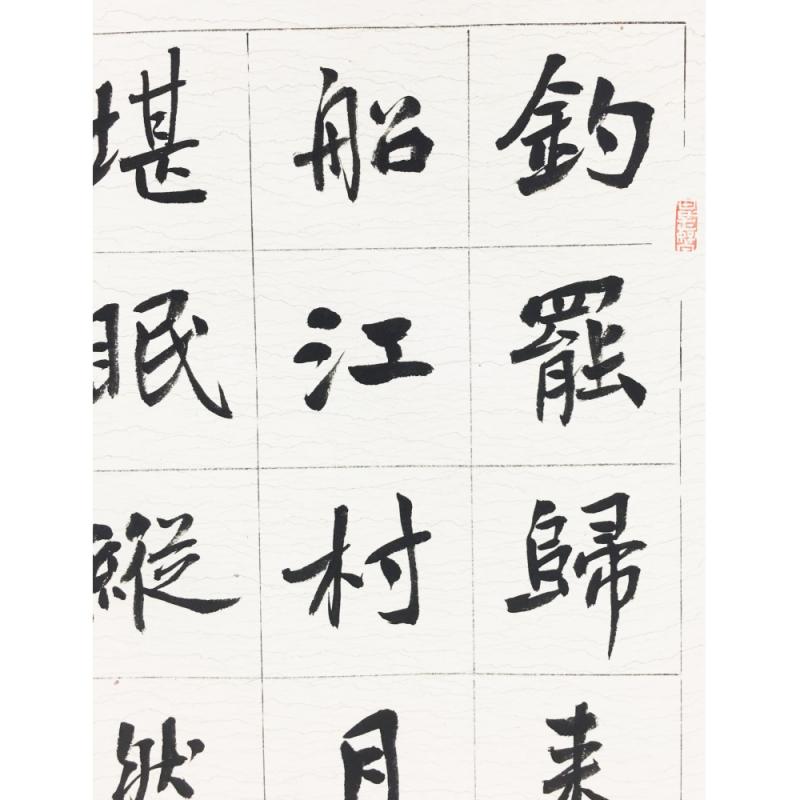 釣罷歸来
船江村月
堪眠縱然